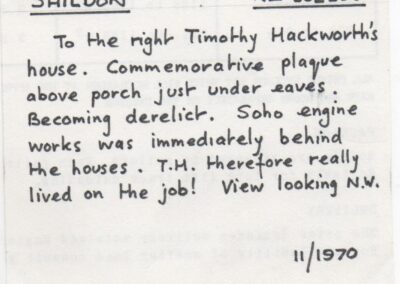 SHILDON
To the right Timothy Hackworth's
house. Commemorative plaque
above porch just under eaves.
Becoming derelict. Soho engine
works was immediately behind
the houses. T.M. therefore really
lived on the job! View looking N.W.
11/1970